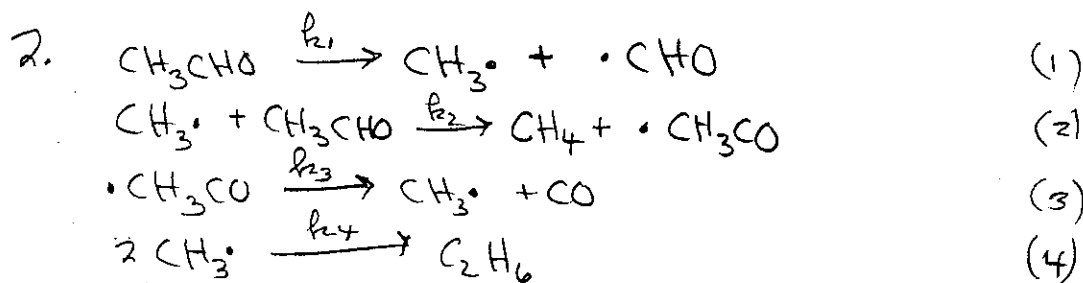 2. CH₃CHO —k₁→ CH₃• + •CHO (1)
CH₃• + CH₃CHO —k₂→ CH₄ + •CH₃CO (2)
•CH₃CO —k₃→ CH₃• + CO (3)
2 CH₃• —k₄→ C₂H₆ (4)